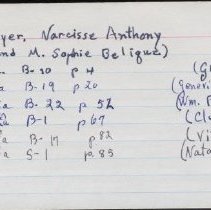 yer, Narcisse Anthony
nd M. Sophie Belique)
B-20 p 4 (G
a B-19 p 20 (Genevi
ia B-22 p. 52 (Wm.
a B-1 p 67 (Cl
ia B-17 p 82 (Vi
ia S-1 p. 85 (Nata